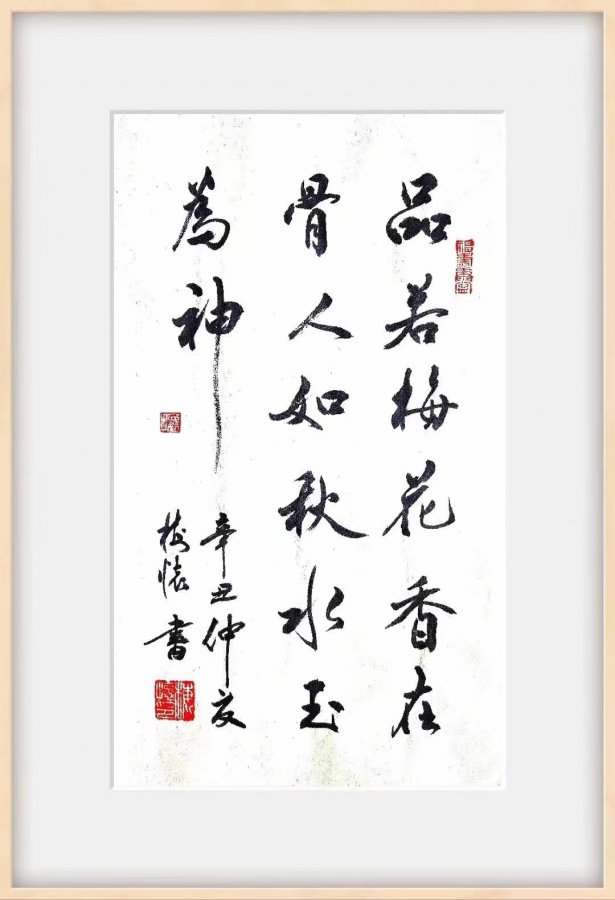 品若梅花香在
骨人如秋水玉
為神
辛丑仲夏
懷書